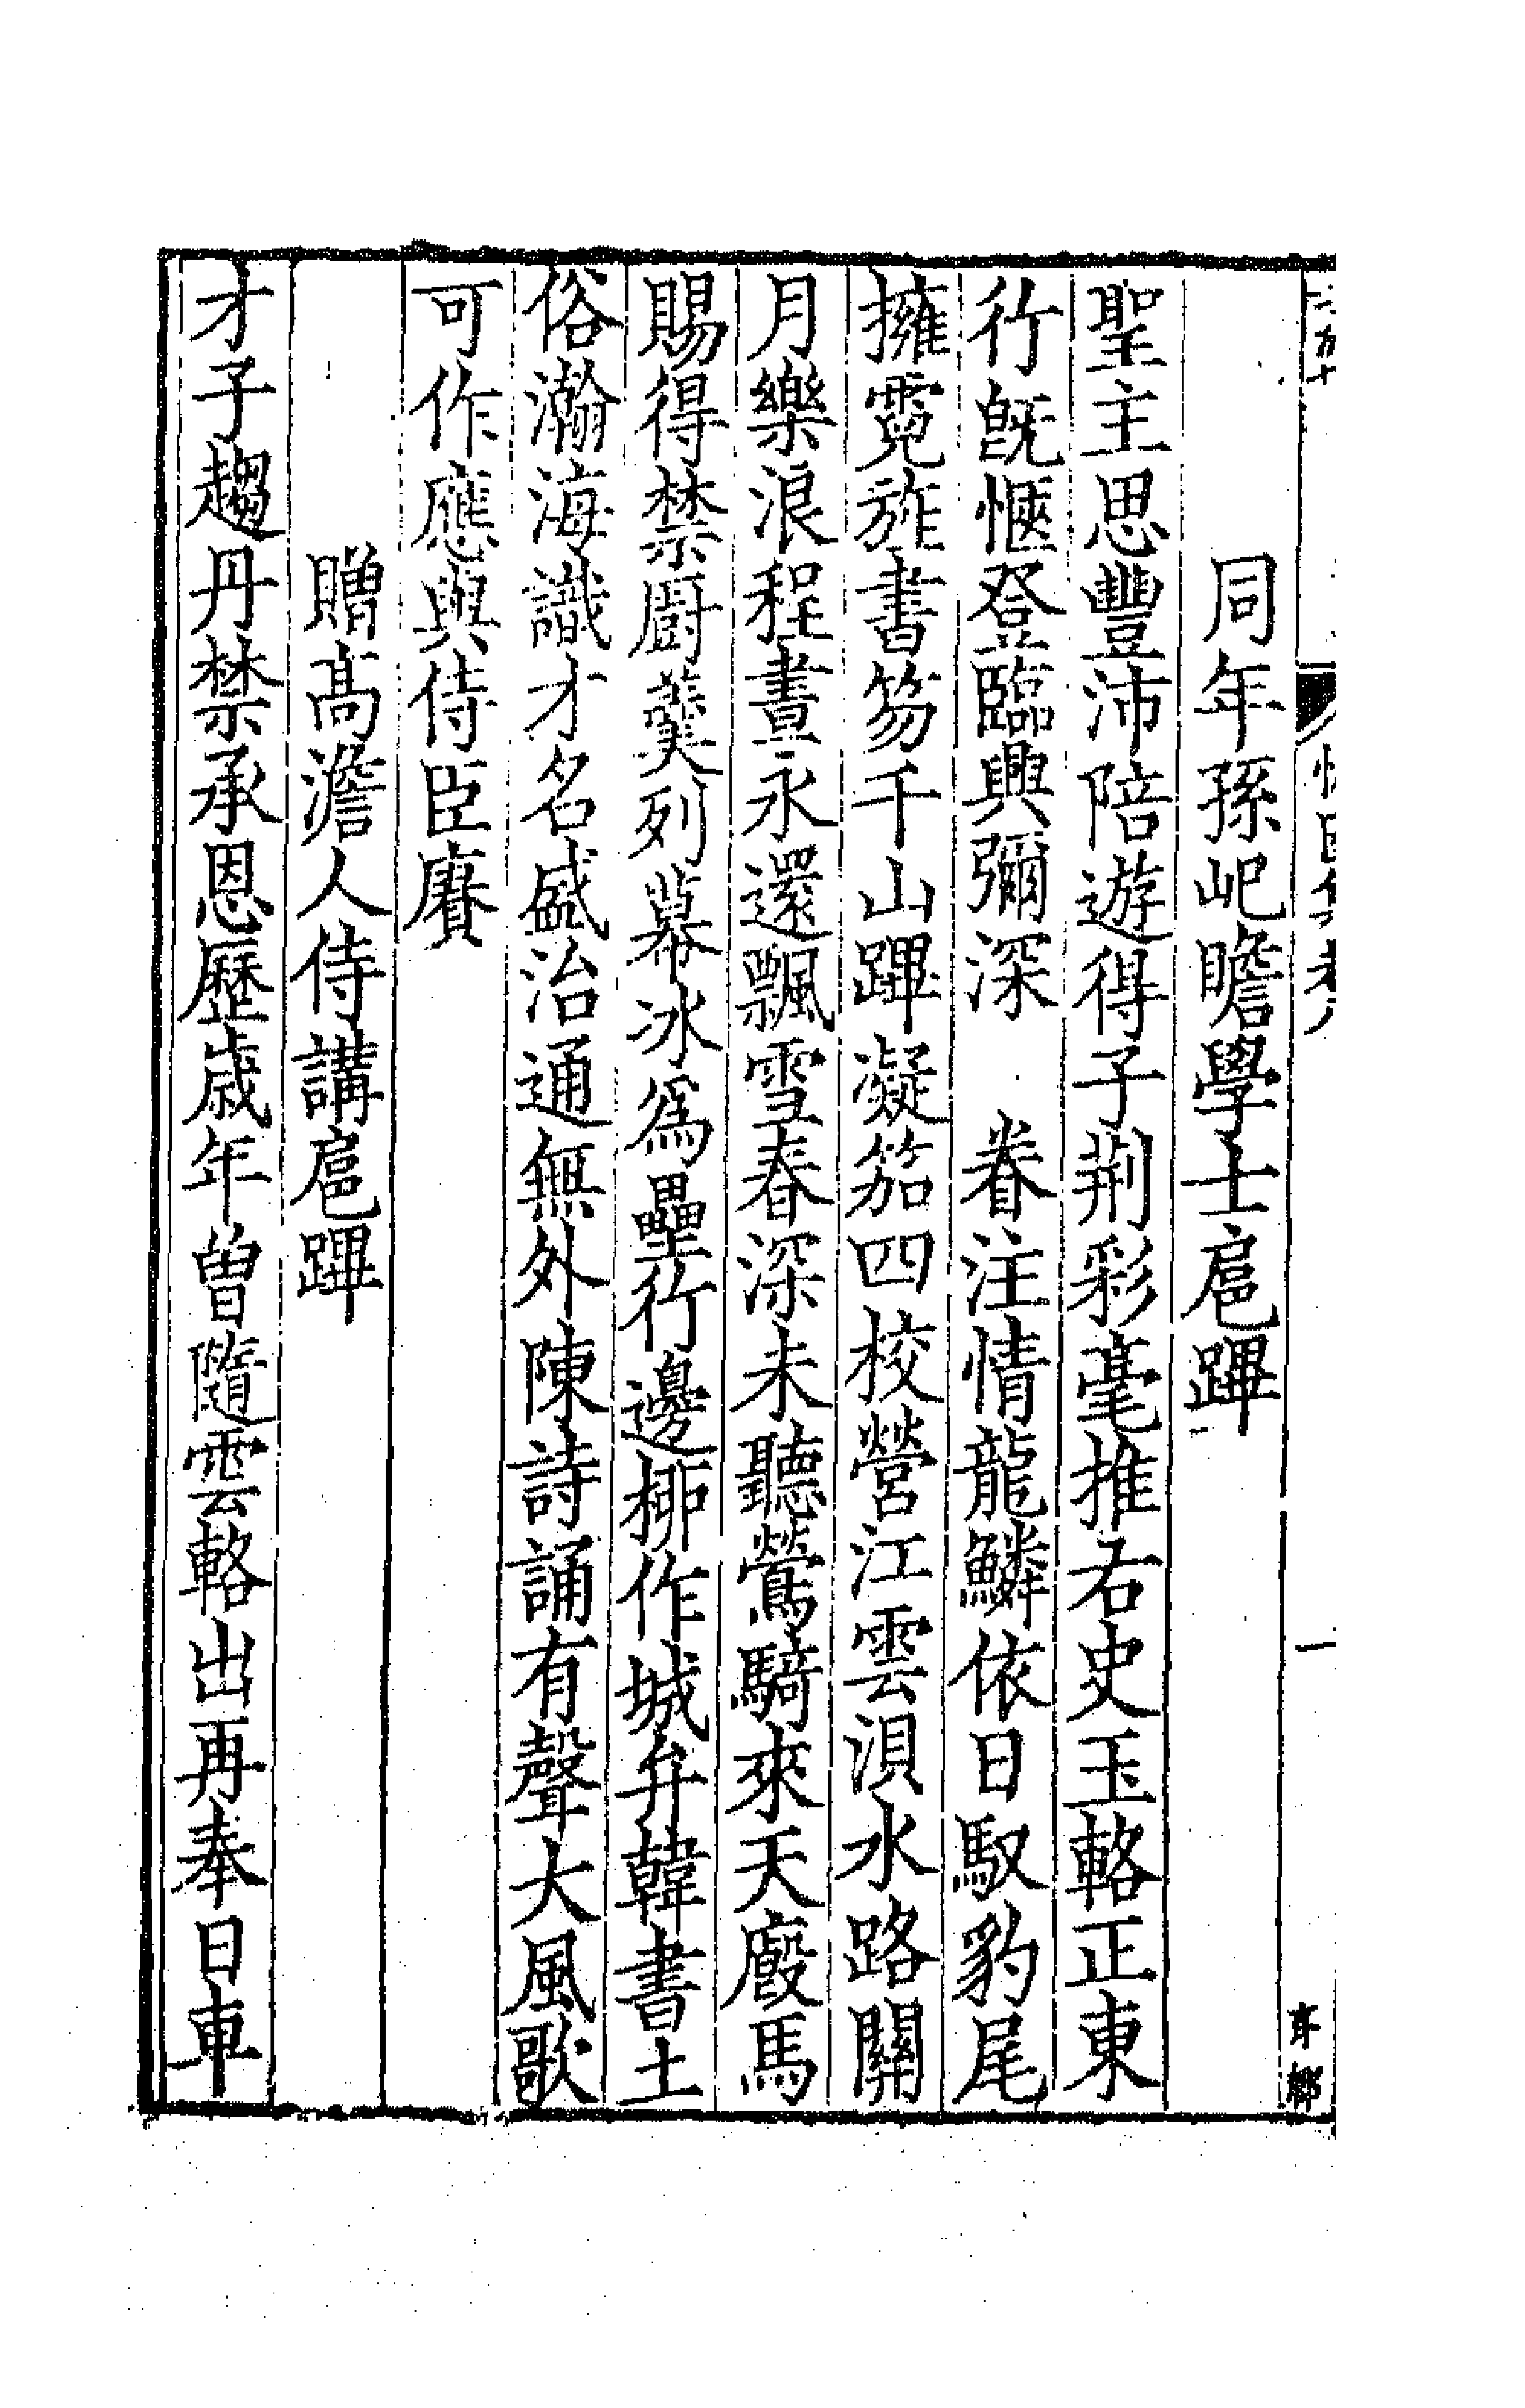 同年孫屺瞻學士扈蹕
聖主思豐沛陪遊得子荆彩毫推右史玉輅正東
行旣愜登臨興彌深　眷注情龍鱗依日馭豹尾
擁霓旌書笏千山蹕凝笳四校營江雲浿水路關
月樂浪程晝永還飄雪春深未聽鶯騎來天廏馬
賜得禁廚羹列幕冰爲壘行邊栁作城弁韓書土
俗瀚海識才名盛治通無外陳詩誦有聲大風歌
可作應與侍臣賡
贈高澹人侍講扈蹕
才子趨丹禁承恩歷歲年曾隨雲輅出再奉日車